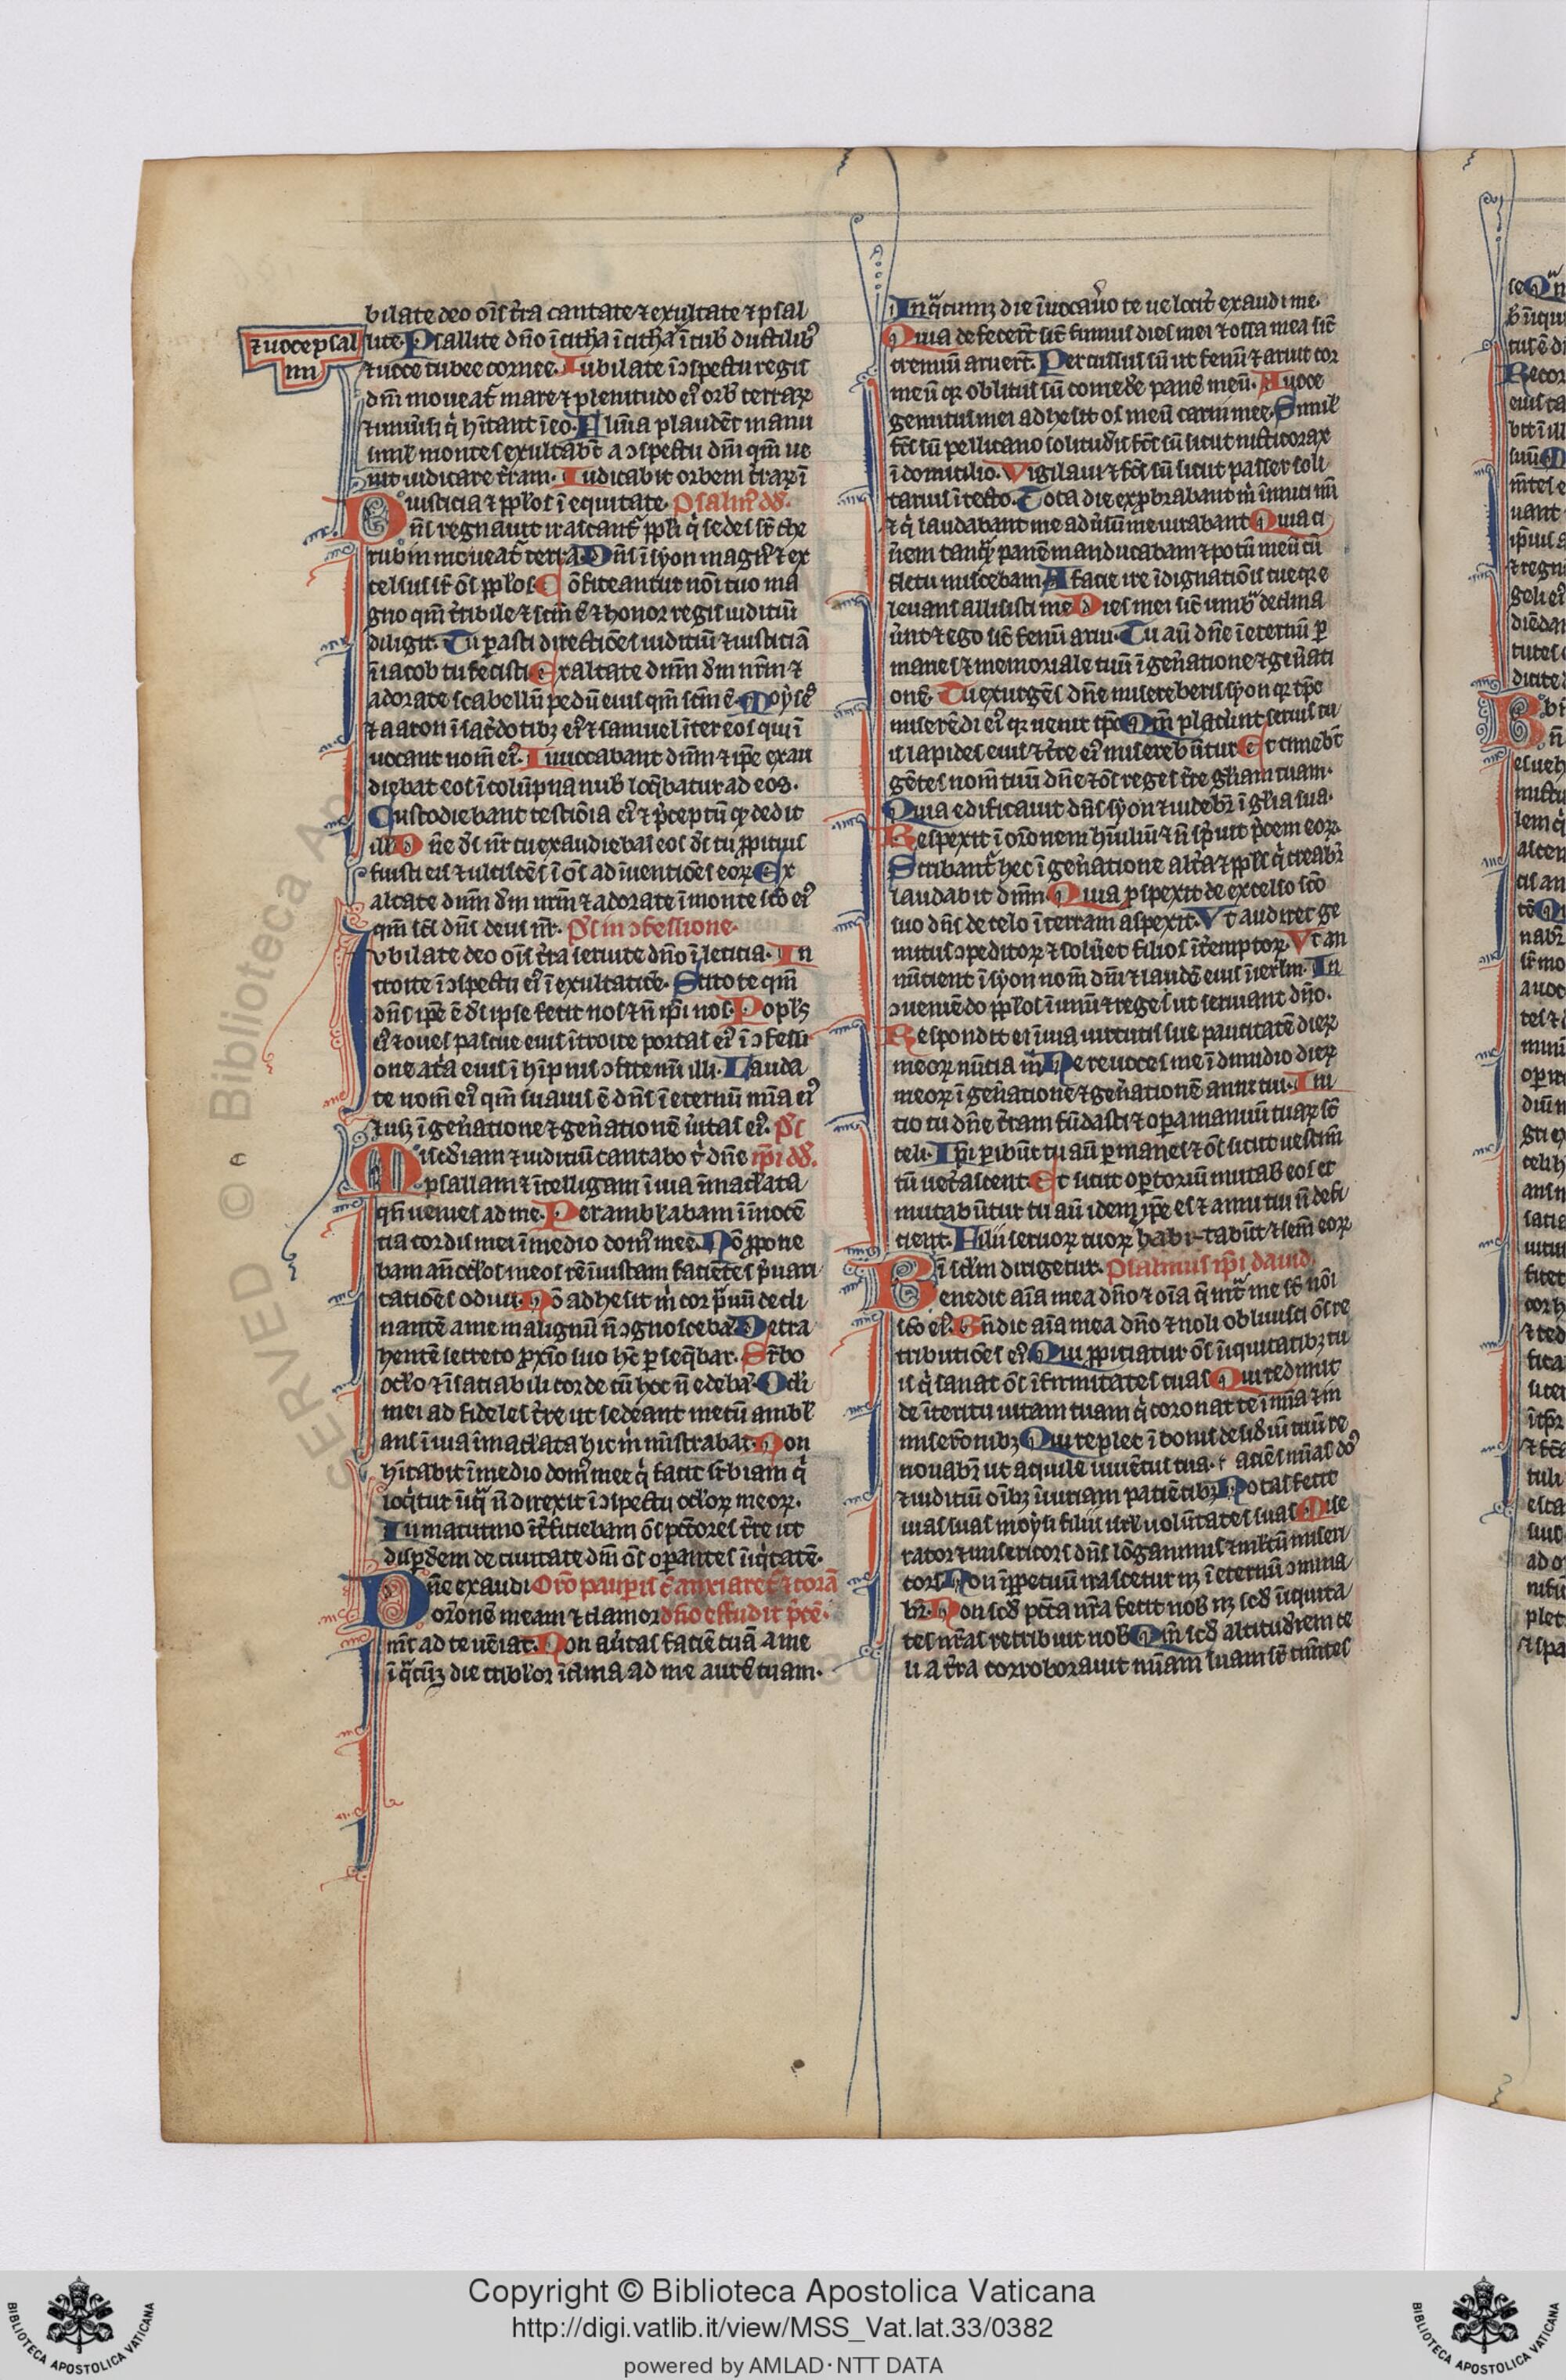 bilate deo oīs t̄ra cantate ⁊ exultate ⁊ psal
⁊ uoce psal
mi
lite. Psallite dn̄o ī cith̄a ī cith̄a ī tub̄ ductilib⁹
⁊ uoce tubee cornee. Iubilate ī ↄspectu regis
dn̄i moueat᷑ mare ⁊ plenitudo ei⁹ orb̄ terraꝝ
⁊ uniu͛si q̇ hītant ī eo. Flum̄a plaudēt manu
simul montes exultab̄t a ↄspectu dn̄i qm̄ ue
nit iudicare t̄ram. Iudicabit orbem t̄raꝝ ī
iusticia ⁊ ppl̄os ī equitate. Psalm⁹ dd̄.
Dn̄s regnauit irascant᷑ ppl̄i q̇ sedes sr̄ che
rubin moueat᷑ terra Dn̄s ī syon magn⁹ ⁊ ex
celsus sr̄ ōs ppl̄os Cōfiteantur nōi tuo ma
gno qm̄ t̄ribile ⁊ sc̄m ē ⁊ honor regis iuditiū
diligit. Tu parasti directiōes iuditiū ⁊ iusticiā
ī iacob tu fecisti Exaltate dn̄m dm̄ nr̄m ⁊
adorate scabellū pedū eius qm̄ sc̄m ē. Moyses
⁊ aaron ī sac̄dotibꝫ ei⁹ ⁊ samuel īter eos qui ī
uocant nom̄ ei⁹. Inuocabant dn̄m ⁊ ip̄e exau
diebat eos ī colūpna nub̄ loq̄batur ad eos.
Custodiebant testiōia ei⁹ ⁊ p̄ceptū qꝫ dedit
ill̄ Dn̄e ds̄ nr̄ tu exaudiebas eos ds̄ tu ꝓpitius
fuisti eis ⁊ ulciscēs ī ōs adīuentiōes eoꝝ Ex
altate dn̄m dm̄ nrm̄ ⁊ adorate ī monte sc̄o ei⁹
qm̄ sc̄s dn̄s deus nr̄. Ps̄ in ↄfessione.
Iubilate deo oīs t̄ra seruite dn̄o ī leticia. In
troite ī ↄspectu ei⁹ ī exultatiōe. Scitote qm̄
dn̄s ip̄e ē ds̄ ipse fecit nos ⁊ n̄ ip̄i nos. Popl̄s
ei⁹ ⁊ oues pascue eius ītroite portas ei⁹ ī ↄfessi
one at̄a eius ī hīpnis ↄfitemī illi. Lauda
te nom̄ ei⁹ qm̄ suauis ē dn̄s ī eternū mīa ei⁹
⁊ usqꝫ ī gen̄atione ⁊ gen̄ationē u̇itas ei⁹. Ps̄
Misc̄diam ⁊ iuditiū cantabo t̄ dn̄e ip̄i dd̄.
psallam ⁊ ītelligam ī uia īmacl̄ata
qn̄ uenies ad me. Perambl̄abam ī īnocē
tia cordis mei ī medio dom⁹ mee. Nō ꝓpone
bam an̄ ocl̄os meos rē iniustam faciētes p̄uari
catiōes odiui. Nō adhesit m̄ cor prauū decli
nantē a me malignū n̄ ↄgnosceba Detra
hentē secreto pxīo suo hc̄ perseq̄bar. Suꝑbo
ocl̄o ⁊ īsatiabili corde cū hoc n̄ edeba᷑. Ocl̄i
mei ad fideles t̄re ut sedeant mecū ambl̄
ans ī uia īmacl̄ata hic m̄ mīstrabat. Non
hītabit ī medio dom⁹ mee q̇ facit suꝑbiam q̇
loq̇tur īiq̄ n̄ direxit ī ↄspectu ocl̄oꝝ meoꝝ.
In matutino īt̄ficiebam ōs pctōres t̄re ut
disperdem de ciuitate dn̄i ōs operantes īiq̇tatē.
Dn̄e exaudi Orō pauꝑis cū anxiaret᷑ ⁊ corā
orōnē meam ⁊ clamor dn̄o effudit p̄cē.
ms̄ ad te uēiat. Non au͛tas faciē tuā a me
ī q̄cūqꝫ die tribl̄or īclina ad me aurē tuam.
In q̄cumqꝫ die īuocauero te uelocit̄ exaudi me.
Quia defecer̄t sic̄ fumus dies mei ⁊ ossa mea sic̄
cremiū aruer̄t. Percussus sū ut fenū ⁊ aruit cor
meū qꝫ oblitus sū comedere panē meū. A uoce
gemitus mei adhesit os meū carni mee. Simil̄
fc̄s sū pellicano solitudīs fc̄s sū sicut nicticorax
ī domicilio. Vigilaui ⁊ fc̄s sū sicut passer soli
tarius ī tecto. Tota die exprobrabant m̄ īimici m̄i
⁊ q̇ laudabant me adu͛sū me iurabant Quia ci
n̄em tanq̄ panē manducabam ⁊ potū meū cū
fletu miscebam A facie ire īdignatiōis tue qꝫ e
leuans allisisti me Dies mei sic̄ umb̄ declina
u͛nt ⁊ ego sic̄ fenū arui. Tu aū dn̄e ī eternū ꝑ
manes ⁊ memoriale tuū ī gen̄atione ⁊ gen̄ati
onē. Tu exurgēs dn̄e misereberis syon qꝫ tp̄s
miserēdi ei⁹ qꝫ uenit tp̄s Qm̄ placuer̄nt seruis tu
is lapides eius ⁊ t̄re ei⁹ misereb̄ntur Et timeb̄t
gētes nom̄ tuū dn̄e ⁊ ōs reges t̄re gl̄iam tuam.
Quia edificauit dn̄s syon ⁊ uideb̄r ī gl̄ia sua.
Respexit ī orōnem hūiliū ⁊ n̄ sp̄uit p̄cem eoꝝ.
Scribant᷑ hec ī gen̄atione alt̄a ⁊ ppl̄s q̇ creabr̄
laudabit dn̄m. Quia ꝓspexit de excelso sc̄o
suo dn̄s de celo ī terram aspexit. Vt audiret ge
mitus ↄpeditoꝝ ⁊ solu͛et filios īt̄emptoꝝ. Vt an
nūtient ī syon nom̄ dn̄i ⁊ laudē eius ī ierl̄m. In
ↄueniēdo ppl̄os ī unū ⁊ reges ut seruiant dn̄o.
Respondit ei ī uia uirtutis sue paucitatē dieꝝ
meoꝝ nūtia m̄ Ne reuoces me ī dimidio dieꝝ
meoꝝ ī gen̄atione ⁊ gen̄ationē anni tui. Ini
tio tu dn̄e t̄ram fūdasti ⁊ opera manuū tuaꝝ sr̄
celi. Ip̄i ꝑibūt tu aū ꝑmanes ⁊ ōs sicut uestim̄
tū uet̄ascent. Et sicut optoriū mutab̄ eos et
mutabūtur tu aū idem ip̄e es ⁊ anni tui n̄ defi
cient. Filii seruoꝝ tuoꝝ habi-tabūt ⁊ sem̄ eoꝝ
ī sc̄lm dirigetur. Psalmus ip̄i dauid
Benedic aīa mea dn̄o ⁊ oīa q̄ int̄ me sr̄ nōi
sc̄o ei⁹. Bn̄dic aīa mea dn̄o ⁊ noli obliuisci ōs re
tributiōes ei⁹. Qui ꝓpitiatur ōs īiquitatibꝫ tu
is q̇ sanat ōs īfirmitates tuas Qui redimit
de īteritu uitam tuam q̇ coronat te ī mīa ⁊ m̄
miserōnibꝫ Qui replet ī bonis desid̄iū tuū re
nouabr̄ ut aquile iuuētus tua. faciēs mīas do⁹
⁊ iuditiū oībꝫ īiuriam patiētibꝫ Notas fecit
uias suas moysi filiis isrl̄ uolūtates suas Mise
rator ⁊ misericors dn̄s lōganimis ⁊ multū miseri
cors Non īꝑpetuū irascetur nꝫ ī eternū ↄmina
br̄. Non scd̄ pctā nr̄a fecit nob̄ nꝫ scd̄ īiquita
tes nr̄as retribuit nob̄ Qm̄ scd̄ altitud̄iem ce
li a t̄ra corroborauit mīam suam sr̄ timētes
Copyright © Biblioteca Apostolica Vaticana
http://digi.vatlib.it/view/MSS_Vat.lat.33/0382
powered by AMLAD·NTT DATA